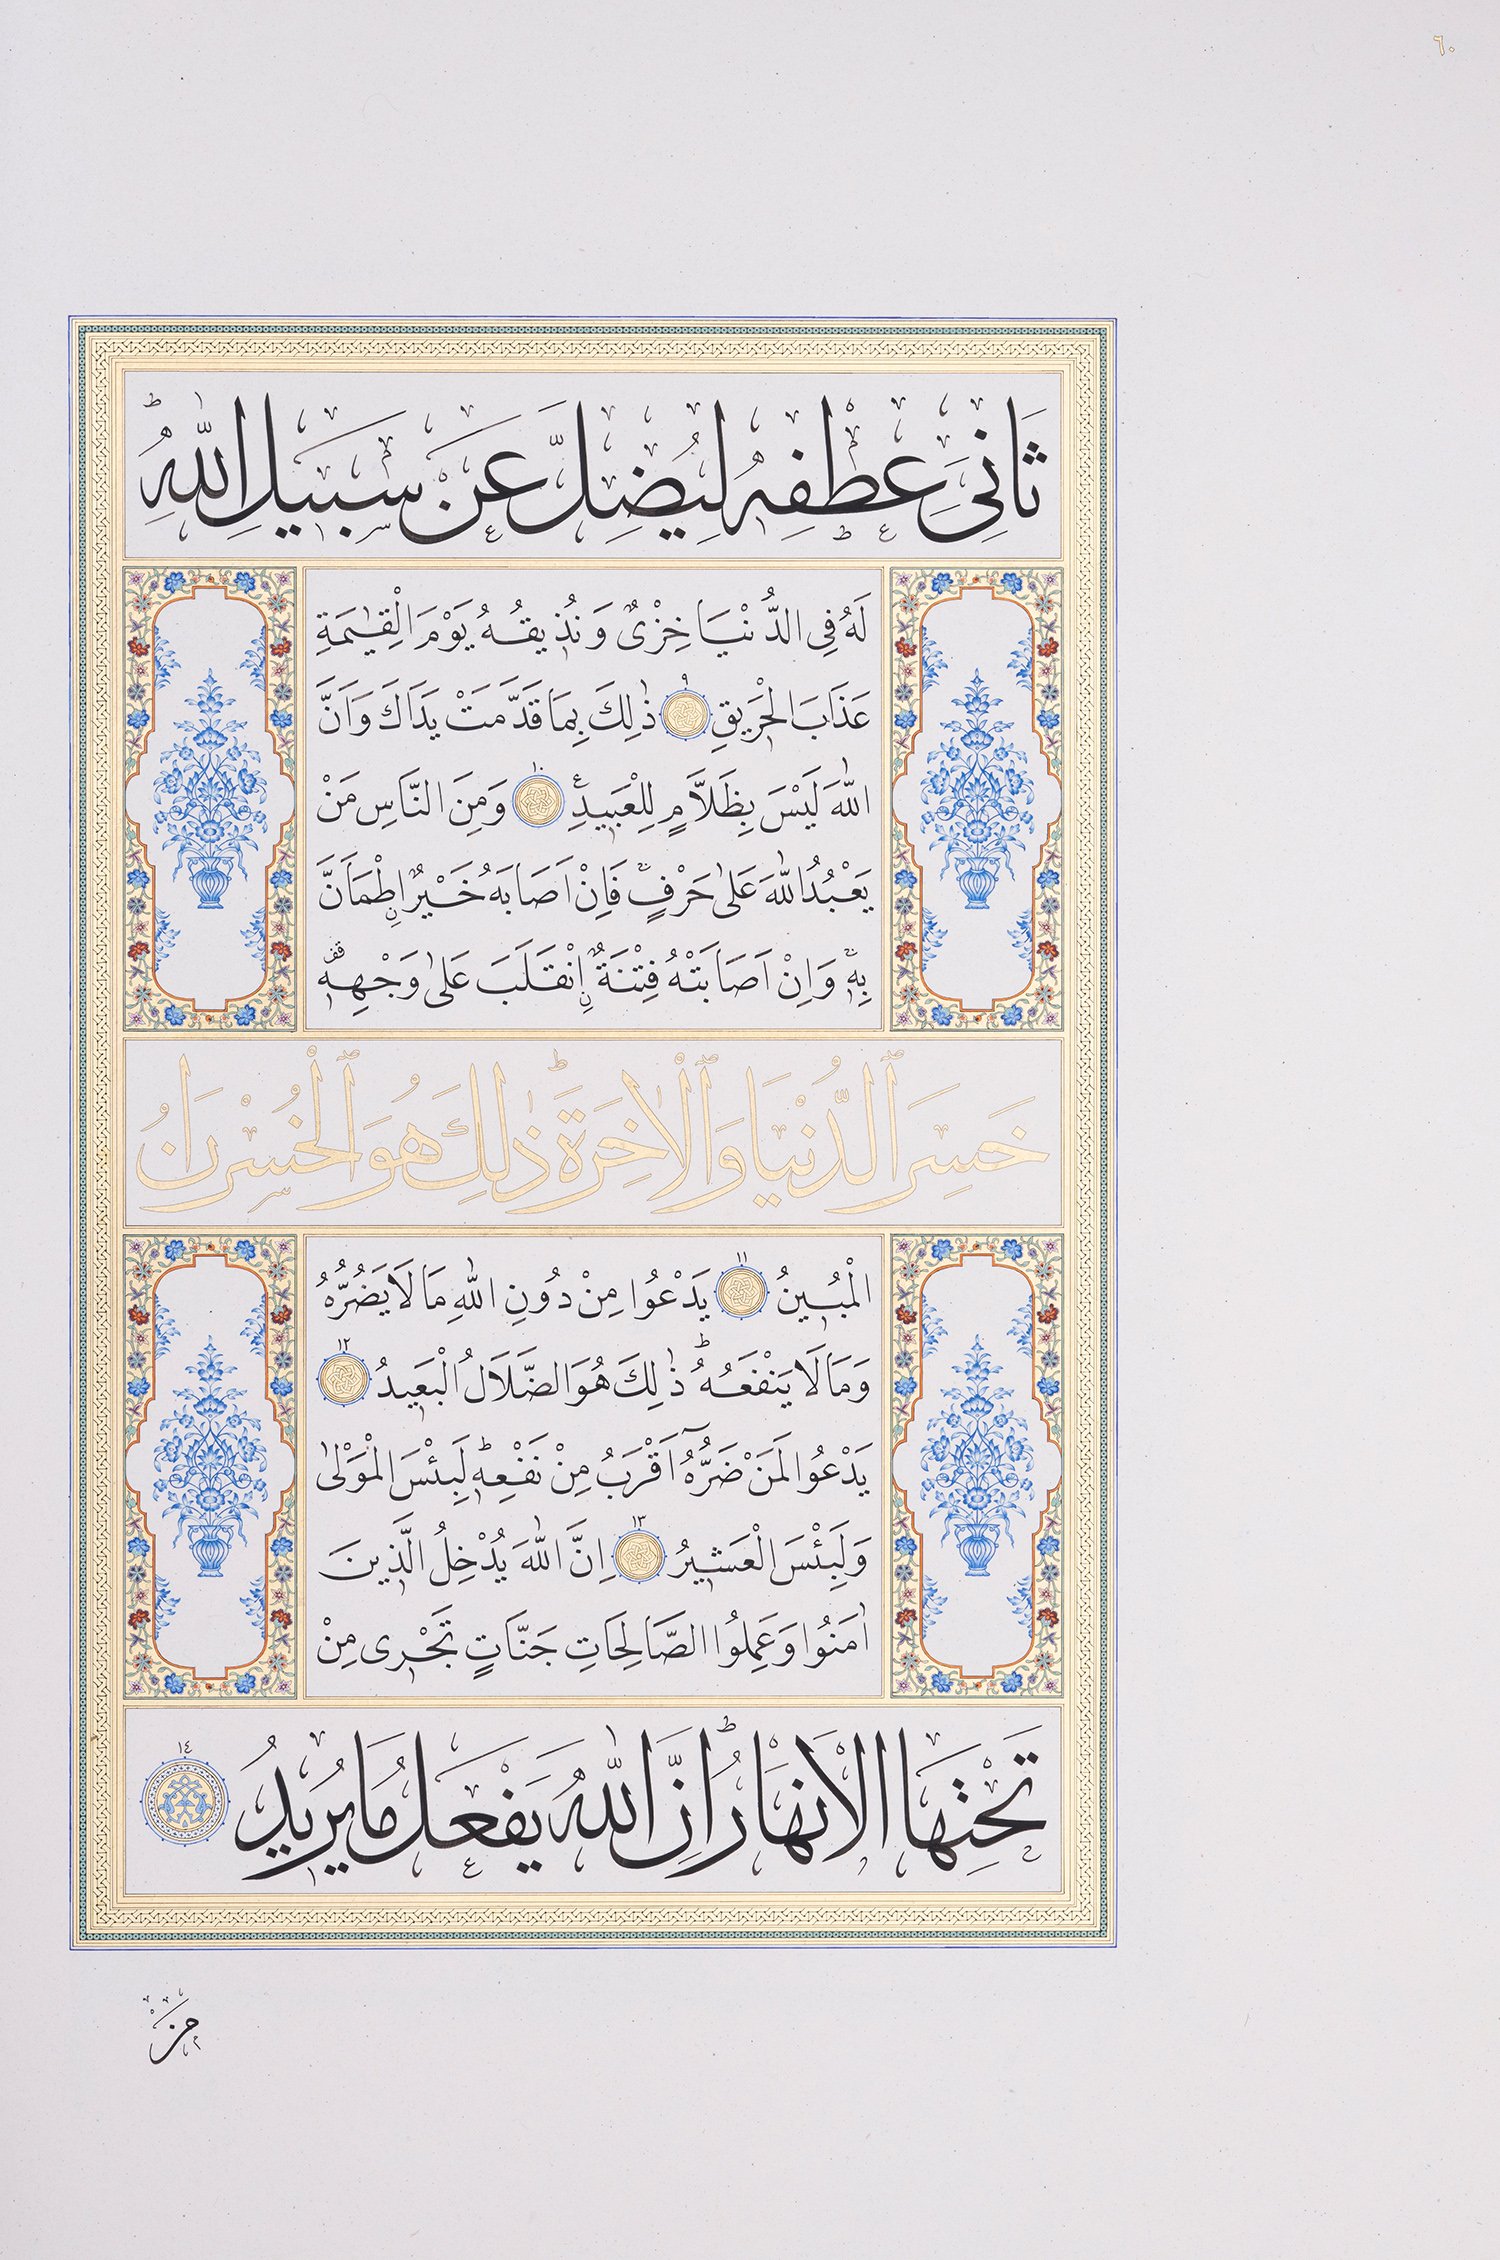 ٦٠
ثَانِيَ عِطْفِهِ لِيُضِلَّ عَنْ سَبِيلِ اللّٰهِ ط
لَهُ فِى الدُّنْيَا خِزْىٌ وَنُذِيقُهُ يَوْمَ الْقِيٰمَةِ
عَذَابَ الْحَرِيقِ ٩ ذٰلِكَ بِمَا قَدَّمَتْ يَدَاكَ وَاَنَّ
اللّٰهَ لَيْسَ بِظَلَّامٍ لِلْعَبِيدِ ع ١٠ وَمِنَ النَّاسِ مَنْ
يَعْبُدُ اللّٰهَ عَلٰى حَرْفٍ ج فَاِنْ اَصَابَهُ خَيْرٌ اِطْمَاَنَّ
بِهٖ ج وَاِنْ اَصَابَتْهُ فِتْنَةٌ اِنْقَلَبَ عَلٰى وَجْهِهٖ قف
خَسِرَ ٱلدُّنْيَا وَٱلْاٰخِرَةَ ط ذٰلِكَ هُوَ ٱلْخُسْرَانُ
الْمُبِينُ ١١ يَدْعُوا مِنْ دُونِ اللّٰهِ مَا لَا يَضُرُّهُ
وَمَا لَا يَنْفَعُهُ ط ذٰلِكَ هُوَ الضَّلَالُ الْبَعِيدُ ١٢
يَدْعُوا لَمَنْ ضَرُّهُٓ اَقْرَبُ مِنْ نَفْعِهٖ ط لَبِئْسَ الْمَوْلٰى
وَلَبِئْسَ الْعَشِيرُ ١٣ اِنَّ اللّٰهَ يُدْخِلُ الَّذِينَ
اٰمَنُوا وَعَمِلُوا الصَّالِحَاتِ جَنَّاتٍ تَجْرِى مِنْ
تَحْتِهَا الْاَنْهَارُ ط اِنَّ اللّٰهَ يَفْعَلُ مَا يُرِيدُ ١٤
مَنْ